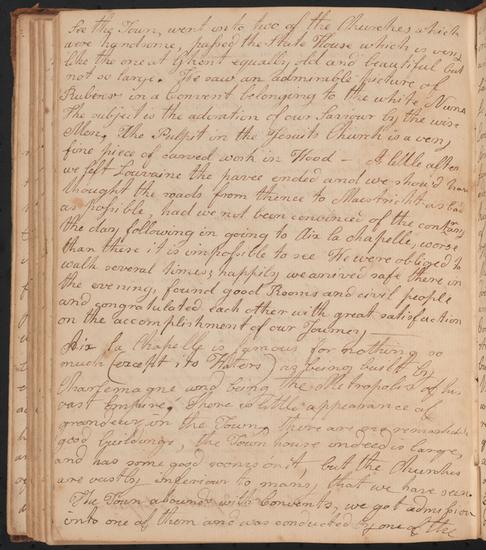 see the Town, went onto two of the Churches which
were handsome, passed the State House which is very
like the one at Ghent equally old and beautiful but
not so large. We saw an admirable picture of
Rubens in a Convent belonging to the white Nuns
The subject is the adoration of our Saviour by the wise
Men, The Pulpit in the Jesuits Church is a very
fine piece of carved work in Wood – A little after
we left Louvaine the pavee ended and we shou'd have
thought the roads from thence to Maestright as bad
as possible, had we not been convinced of the contrary
the day following in going to Aix la chapelle, worse
than these it is impossible to see We were obliged to
walk several times, happily we arrived safe there in
the evening, found good Rooms and civil people
and congratulated each other with great satisfaction
on the accomplishment of our Journey —
Aix la Chapelle is famous for nothing so
much (except its Waters) as being built by
Charlemagne and being the Metropolis of his
vast Empire. There is little appearance of
grandeur in the Town, there are no remarkable
good buildings, the Town house indeed is large,
and has some good rooms in it, but the Churches
are vastly inferiour to many that we have seen
The Town abounds with Convents, we got admission
into one of them and was conducted by one of the